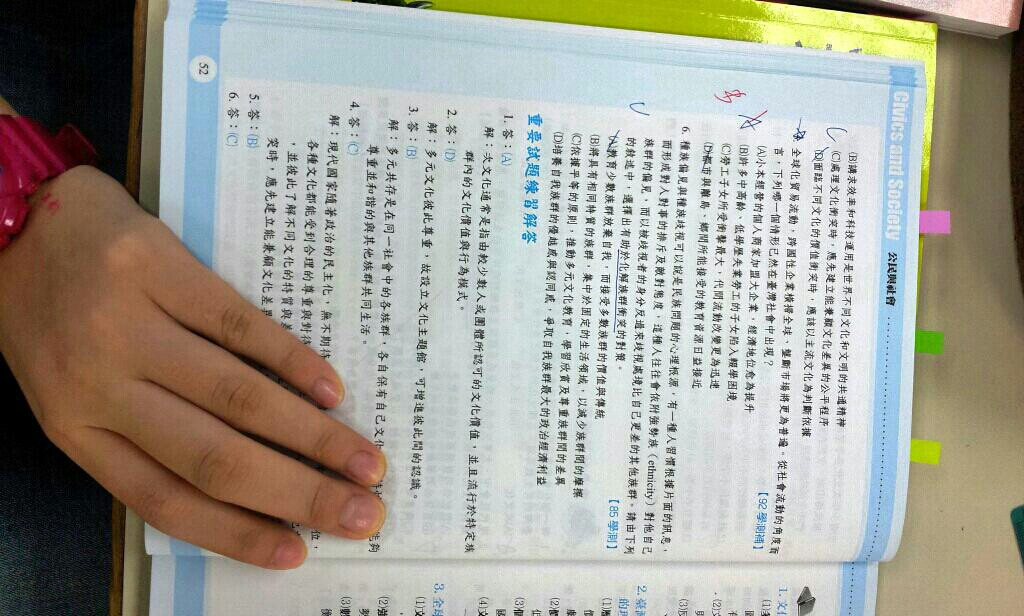 Civics and Society 公民與社會
(B)講求效率和科技運用是世界不同文化和文明的共通精神
(C)處理文化衝突時，應先建立能兼顧文化差異的公平程序
(D)面臨不同文化的價值衝突時，應該以主流文化為判斷依據
全球化貿易流動，跨國性企業橫掃全球、壟斷市場將更為普遍。從社會流動的角度而
言，下列哪一個情形已然在臺灣社會中出現？【92學測補】
(A)小本經營的個人商家加盟大企業，經濟地位愈為提升
(B)許多中高齡、低學歷失業勞工的子女陷入輟學困境
(C)勞工子女所受衝擊最大，代間流動改變更為迅速
(D)都市與離島、鄉間所能接受的教育資源日益接近
6. 種族偏見與種族歧視可以說是民族問題的心理根源，有一種人習慣根據片面的訊息，
而形成對人對事的排斥及敵對態度，這種人往往會依附強勢族（ethnicity）對他自己
族群的偏見，而以被歧視者的身分反過來歧視處境比自己更差的其他族群。請由下列
的敘述中，選擇出有助於化解族群衝突的對策。【85學測】
(A)教育少數族群放棄自我，而接受多數族群的價值與傳統
(B)將具有相同特質的族群，集中於固定的生活領域，以減少族群間的摩擦
(C)依據平等的原則，推動多元文化教育，學習欣賞及尊重族群間的差異
(D)培養自我族群的優越感與認同感，爭取自我族群最大的政治經濟利益
重要試題練習解答
1. 答：(A)
解：次文化通常是指由較少數人或團體所認可的文化價值，並且流行於特定族
群內的文化價值與行為模式。
2. 答：(D)
解：多元文化彼此尊重，故設立文化主題館，可增進彼此間的認識。
3. 答：(B)
解：多元共存是在同一社會中的各族群，各自保有自己文化 能夠
尊重並和諧的與其他族群共同生活。
4. 答：(C)
解：現代國家隨著政治的民主化，無不期待 位，
各種文化都能受到合理的尊重與對待
，並彼此了解不同文化的特質與差
突時，應先建立能兼顧文化差異
5. 答：(B)
6. 答：(C)
52
1. 文
2. 臺灣
的
3. 全球